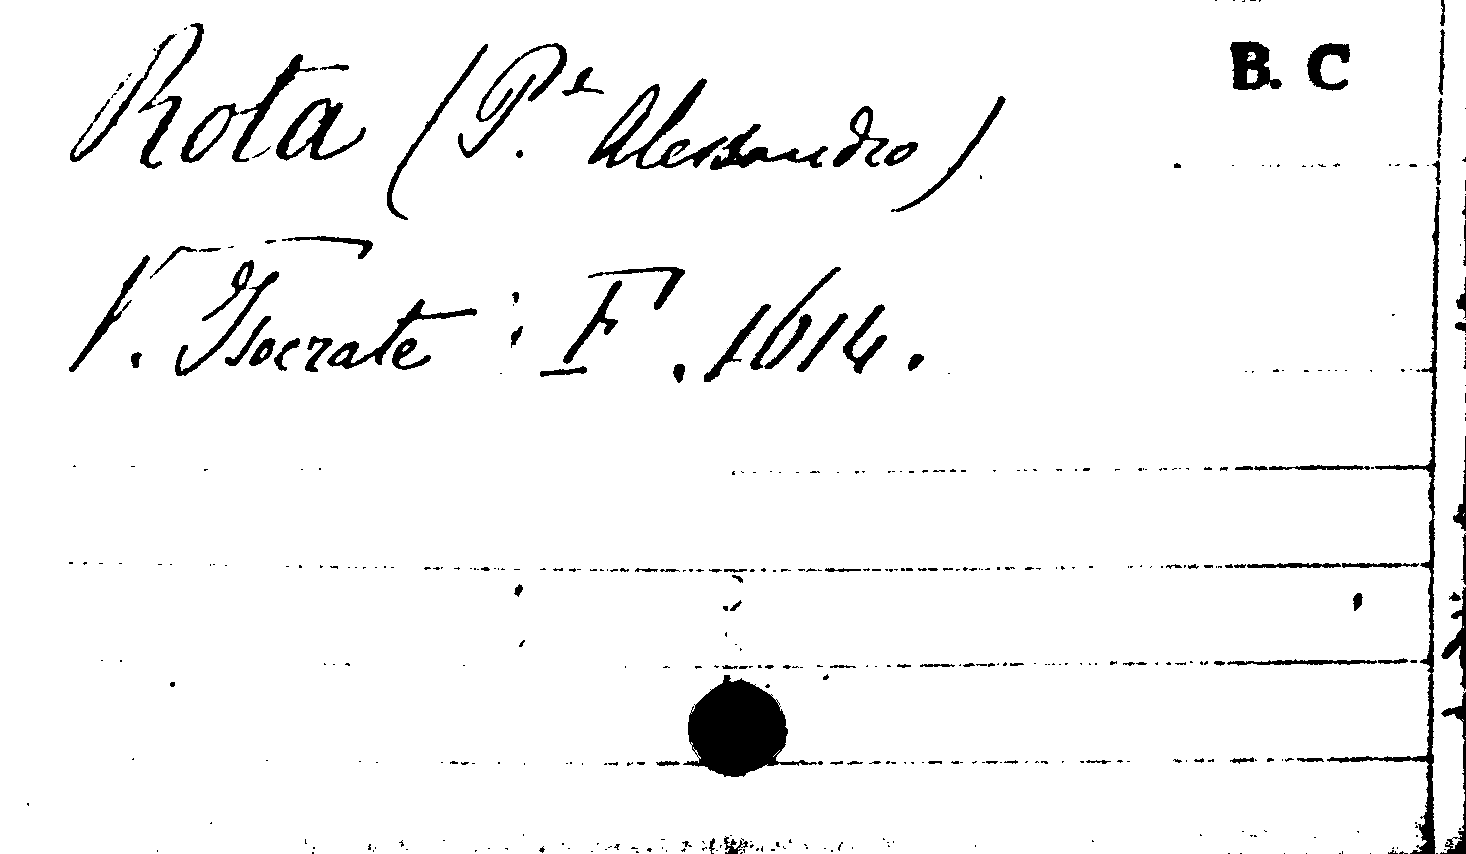 B. C
Rota (P.e Alessandro)
V. Isocrate : F. 1614.